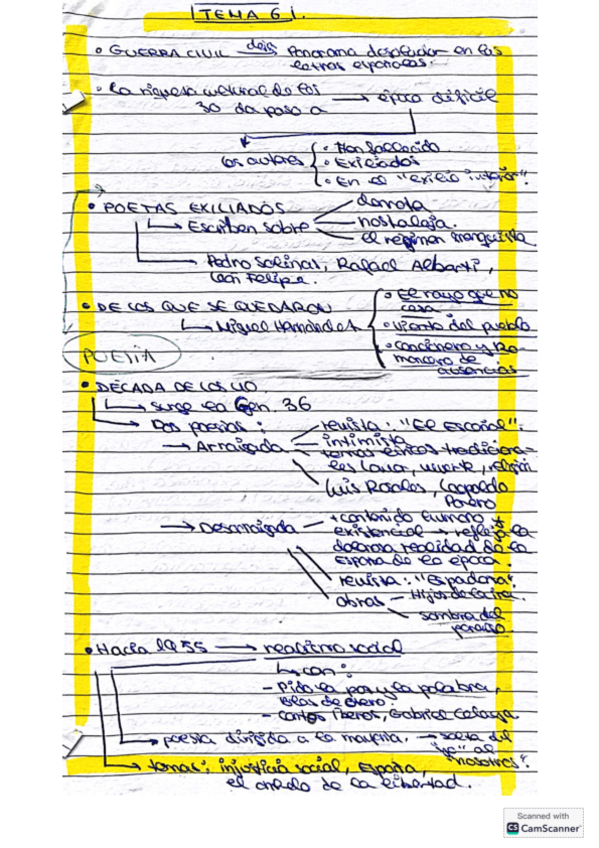 TEMA 6
• GUERRA CIVIL deja Panorama desolador en las
letras españolas.
• La riqueza cultural de los
30 da paso a → época difícil
los autores
• Han fallecido
• Exiliados
• En el "exilio interior".
• POETAS EXILIADOS
→ Escriben sobre
derrota
nostalgia.
el régimen franquista
→ Pedro Salinas, Rafael Alberti,
León Felipe.
• DE LOS QUE SE QUEDARON
→ Miguel Hernández
• El rayo que no
cesa
• Viento del pueblo
• Cancionero y Ro-
mancero de
ausencias
POESÍA
• DÉCADA DE LOS 40
→ Surge la Gen. 36
→ Dos poesías:
→ Arraigada
revista: "El Español".
intimista
temas éticos tradiciona-
les (amor, muerte, religión
Luis Rosales, Leopoldo
Panero
→ Desarraigada
+ contenido humano y
existencial → refleja la
dolorosa realidad de la
España de la época.
revista: "Espadaña".
Obras
Hijos de la ira.
sombra del
paraíso.
• Hacia 1955 → realismo social
→ con:
- Pido la paz y la palabra,
Blas de Otero.
- Cantos Íberos, Gabriel Celaya
→ poesía dirigida a la mayoría. → salta del
"yo" al
"nosotros".
→ temas: injusticia social, España,
el anhelo de la libertad.
Scanned with
CS CamScanner